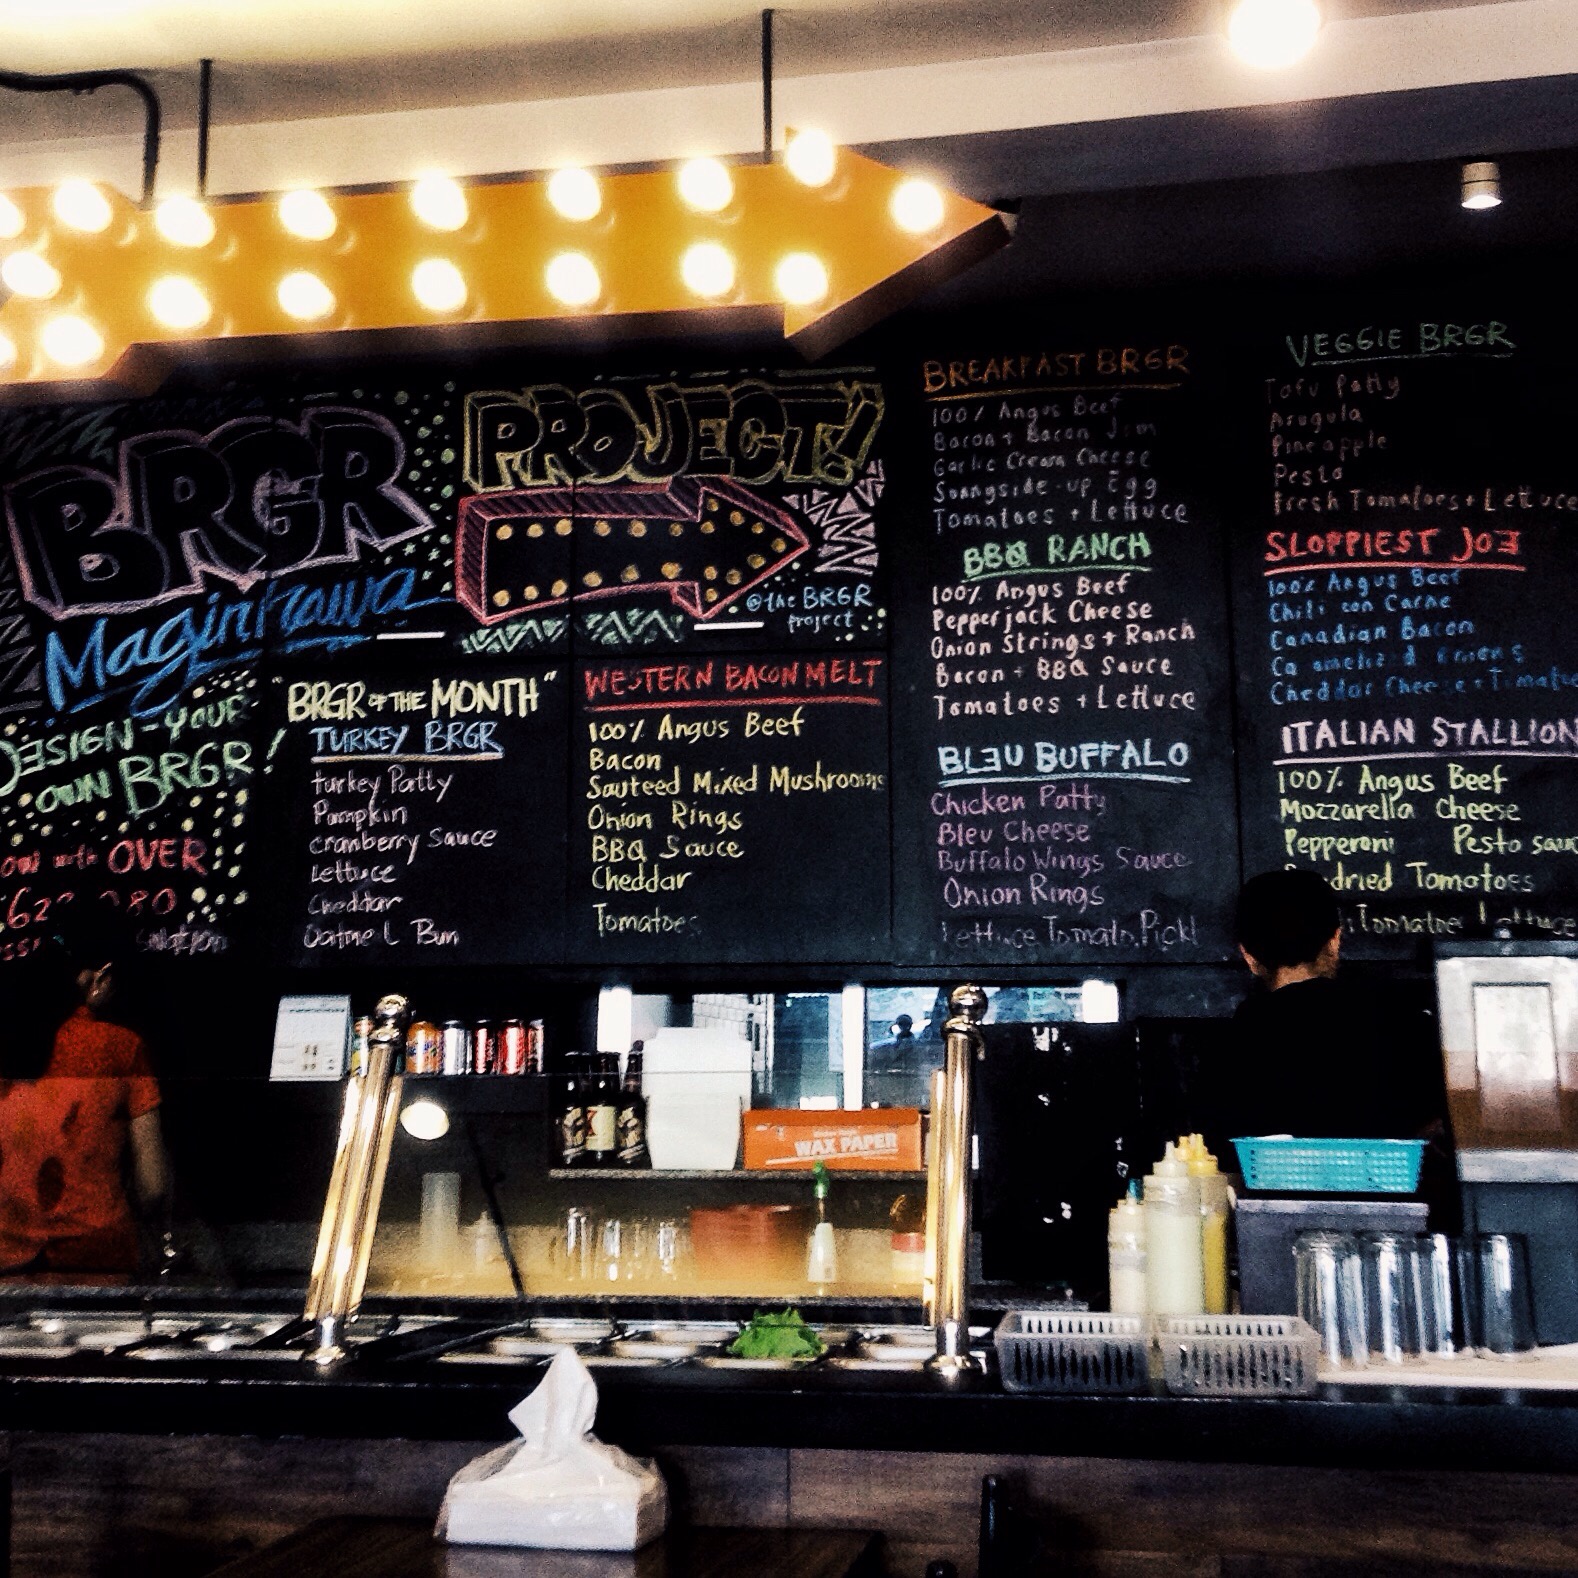 BRGR
PROJECT!
Maginhawa
@the BRGR
project
DESIGN-YOUR
OWN BRGR!
OVER
"BRGR OF THE MONTH"
TURKEY BRGR
turkey Patty
Pumpkin
cranberry Sauce
Lettuce
Cheddar
Oatmeal Bun
WESTERN BACON MELT
100% Angus Beef
Bacon
Sauteed Mixed Mushrooms
Onion Rings
BBQ Sauce
Cheddar
Tomatoes
BREAKFAST BRGR
100% Angus Beef
Bacon + Bacon Jam
Garlic Cream Cheese
Sunnyside-up Egg
Tomatoes + Lettuce
BBQ RANCH
100% Angus Beef
Pepperjack Cheese
Onion Strings + Ranch
Bacon + BBQ Sauce
Tomatoes + Lettuce
BLEU BUFFALO
Chicken Patty
Bleu Cheese
Buffalo Wings Sauce
Onion Rings
Lettuce, Tomato, Pickl
VEGGIE BRGR
Tofu Patty
Arugula
Pineapple
Pesto
Fresh Tomatoes + Lettuce
SLOPPIEST JOE
100% Angus Beef
Chili con Carne
Canadian Bacon
Caramelized Onions
Cheddar Cheese + Tomatoe
ITALIAN STALLION
100% Angus Beef
Mozzarella Cheese
Pepperoni Pesto sauc
dried Tomatoes
Tomatoe Lettuce
WAX PAPER